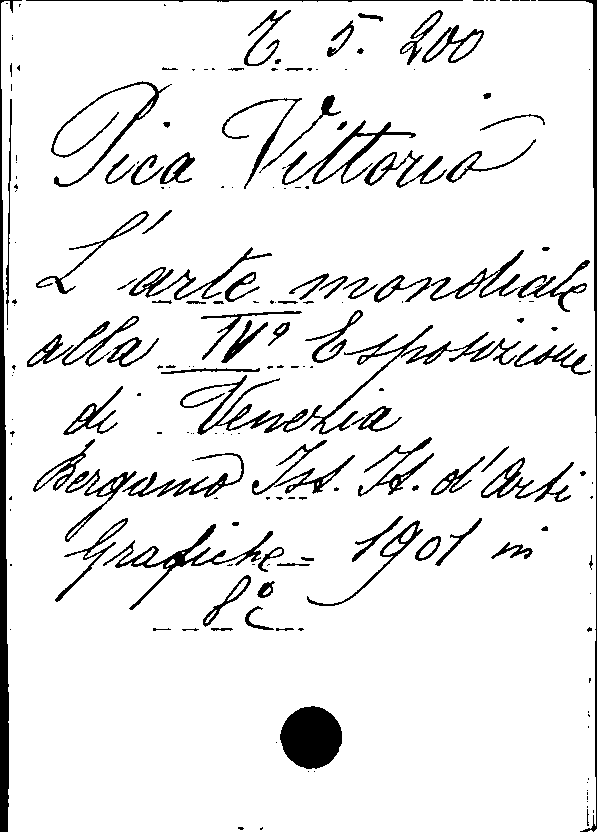 5. 200
Pica Vittorio
L'arte mondiale
alla IVº Esposizione
di Venezia
Bergamo Ist. It. d'Arti
Grafiche - 1901 in
8º